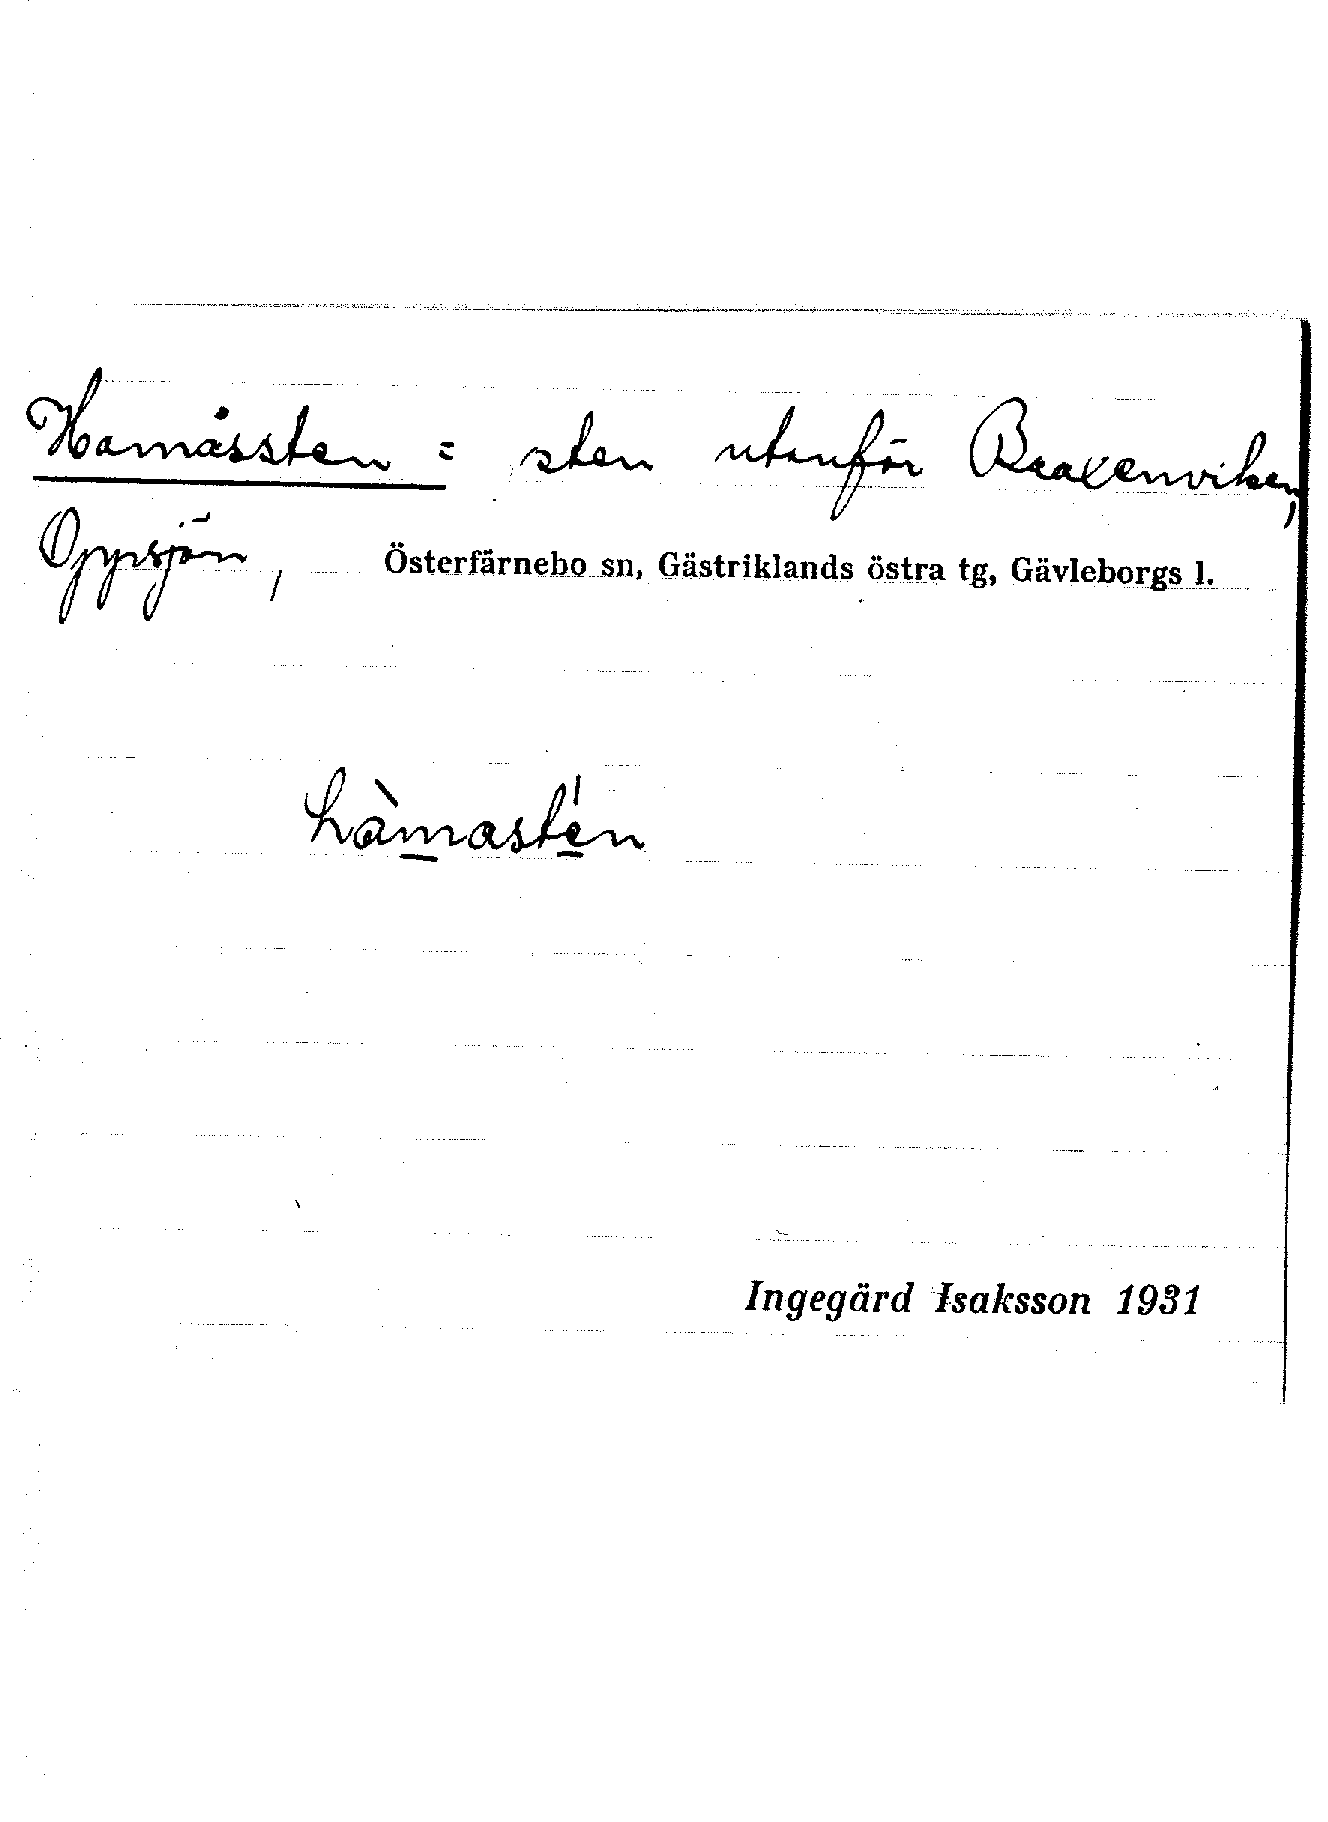 Hamåssten = sten utanför Braxenviken,
Oppsjön, Österfärnebo sn, Gästriklands östra tg, Gävleborgs l.
hàmasté̱n
Ingegärd Isaksson 1931